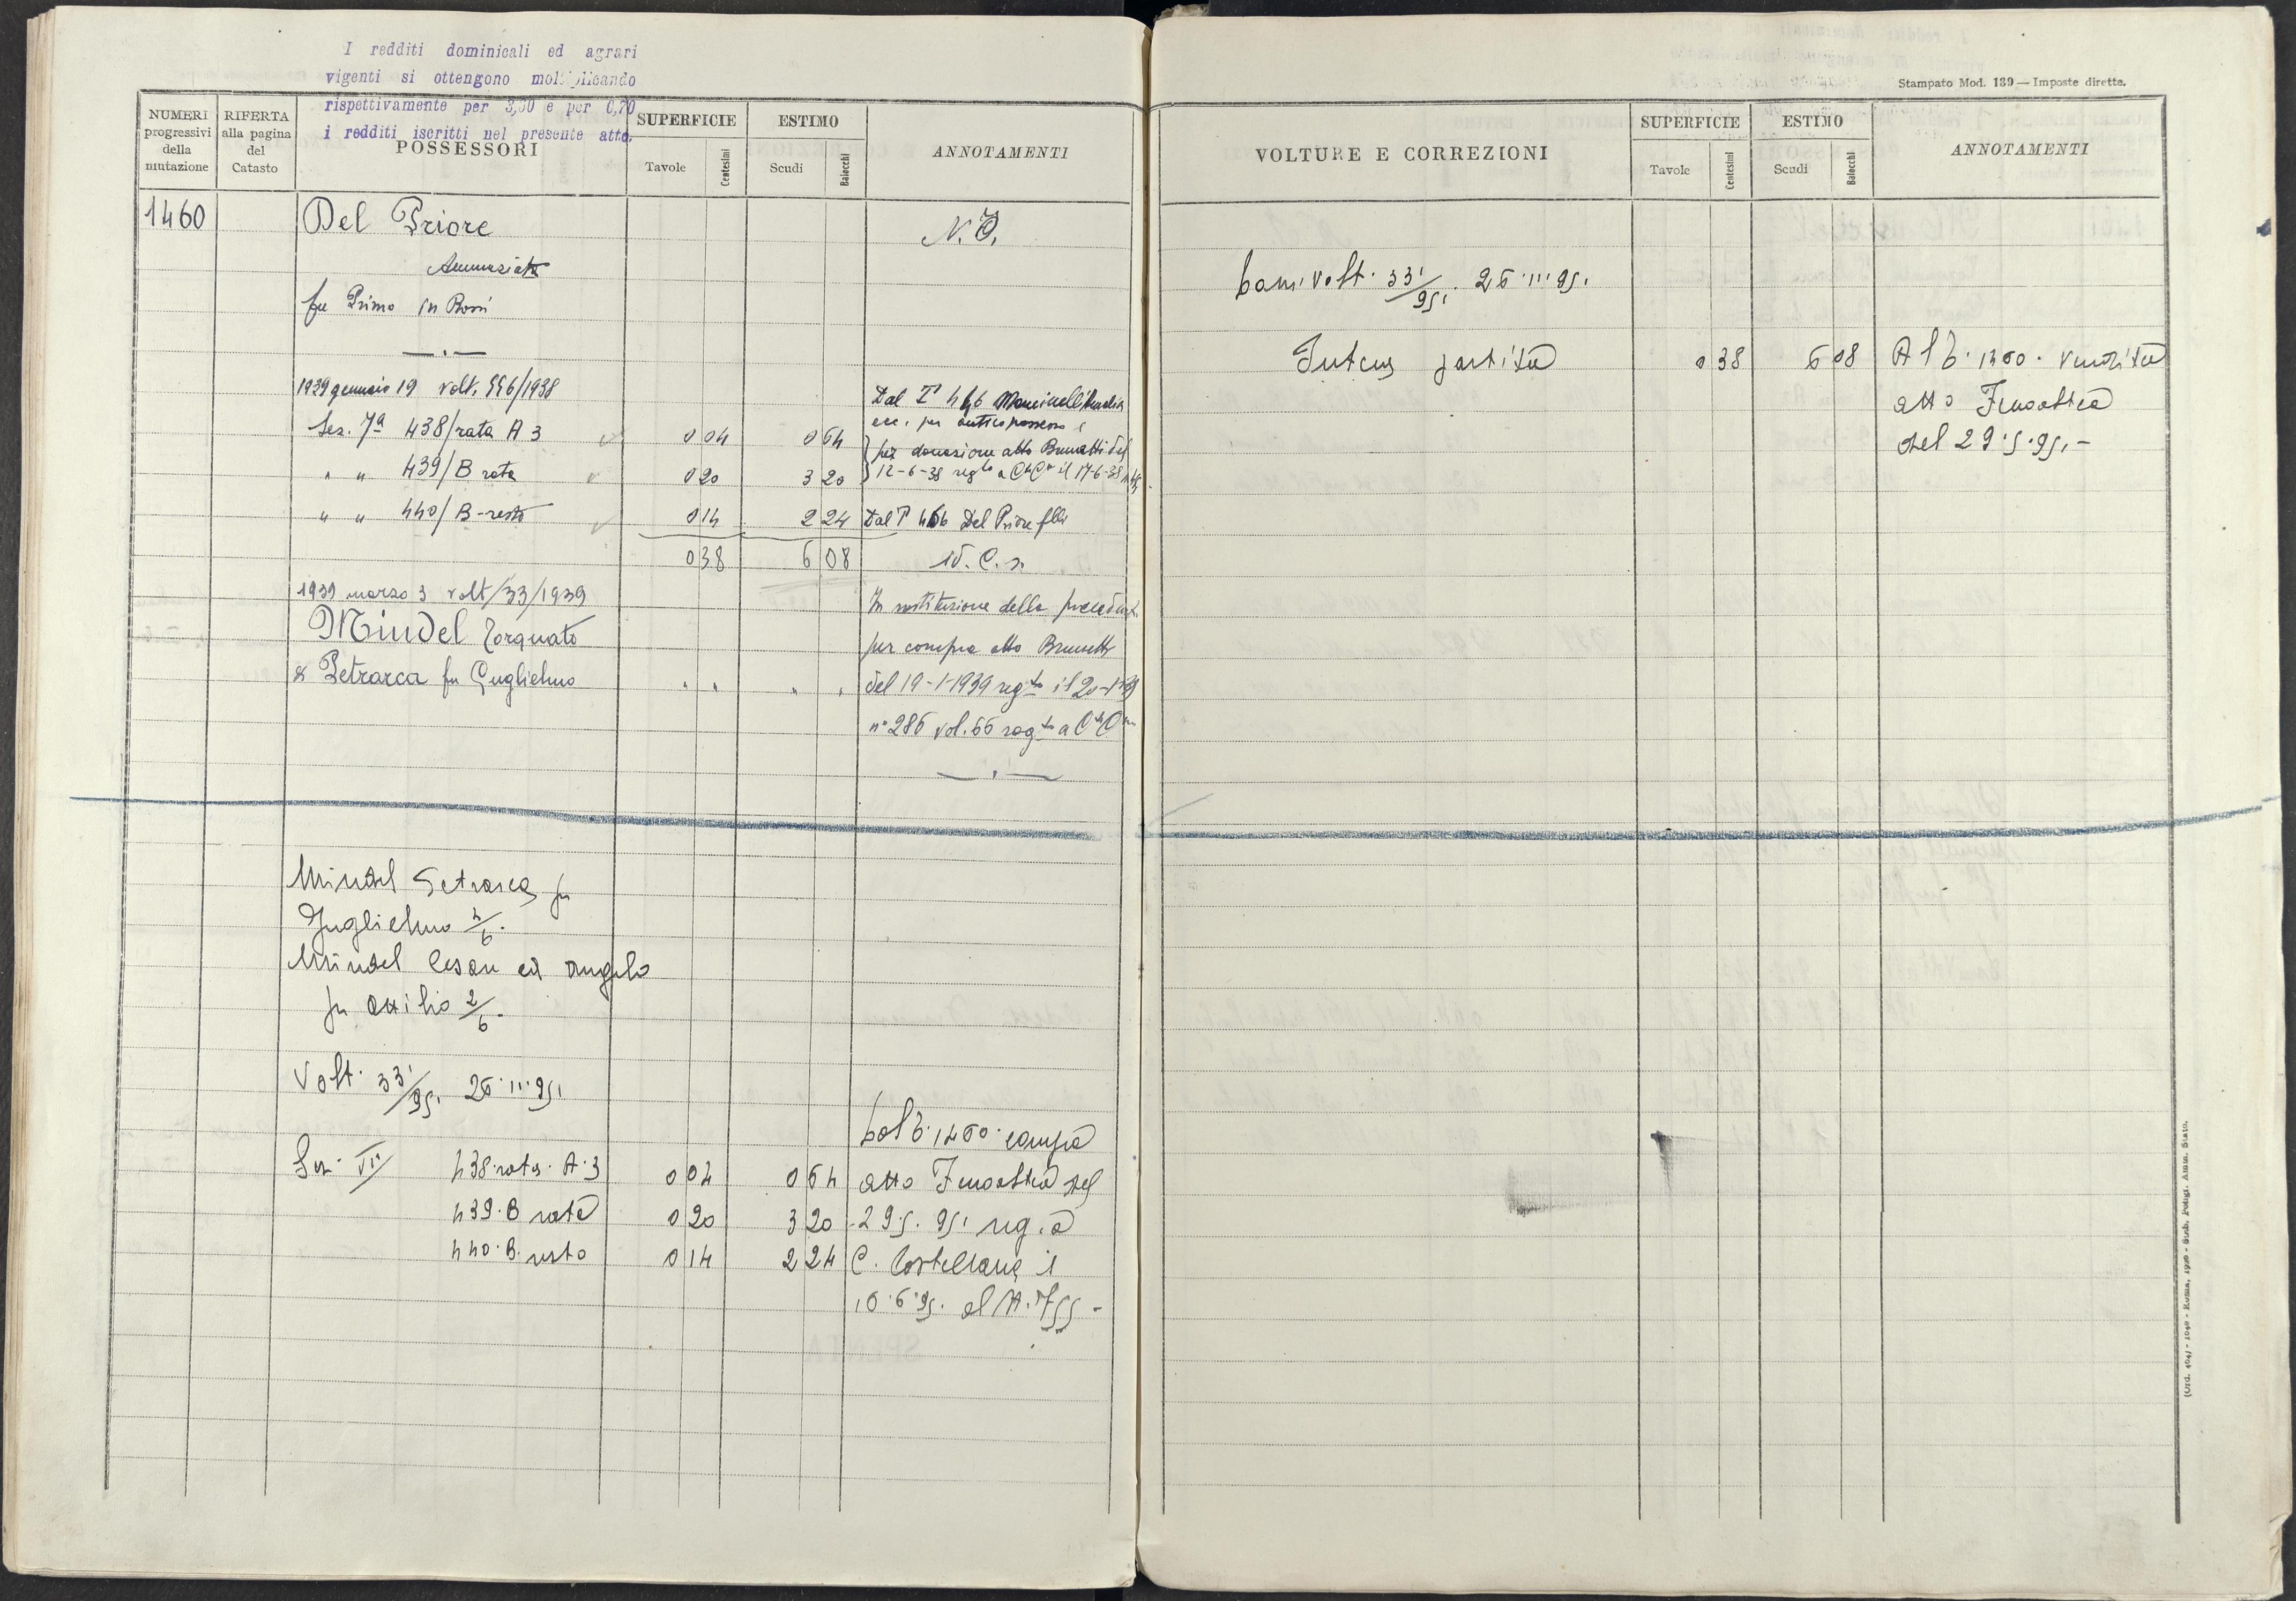 I redditi dominicali ed agrari
vigenti si ottengono moltiplicando
rispettivamente per 3,30 e per 6,70
i redditi iscritti nel presente atto.
NUMERI
progressivi
della
mutazione
RIFERTA
alla pagina
del
Catasto
POSSESSORI
SUPERFICIE
Tavole
Centesimi
ESTIMO
Scudi
Baiocchi
ANNOTAMENTI
1460
Del Priore
N. C.
Annunziata
fu Primo in Rossi
1939 gennaio 19 volt. 556/1938
Dal T 446 Mancinelli
ecc. per antico possesso e
Sez. 7ª 438/rata A 3 0 04 0 64
per donazione atto Brunetti del
" " 439/B rata 0 20 3 20
12-6-38 regto a CtCna il 17-6-38
" " 440/B-resto 0 14 2 24 Dal T 466 Del Priore flli
0 38 6 08
1939 marzo 3 volt/33/1939
In sostituzione della precedente
Mindel Torquato
per compra atto Brunetti
& Petrarca fu Guglielmo " " " "
del 19-1-1939 regto il 20-1-39
n° 286 vol. 66 regto a CtCna
Mindel Petrarca fu
Guglielmo 4/6.
Mindel Cesare ed Angelo
fu Attilio 2/6.
Volt. 33/951 26.III.951
Dal T. 1460 compra
Sez. VII 438 rata A.3 0 04 0 64 atto del
439.B rata 0 20 3 20 29.5.951 reg. a
440.B. resto 0 14 2 24 C. Castellana il
Stampato Mod. 139 — Imposte dirette.
VOLTURE E CORREZIONI
SUPERFICIE
Tavole
Centesimi
ESTIMO
Scudi
Baiocchi
ANNOTAMENTI
volt. 33/951. 26.III.951.
Intera partita 0 38 6 08 Al T. 1460. vendita
atto
del 29.5.951.-